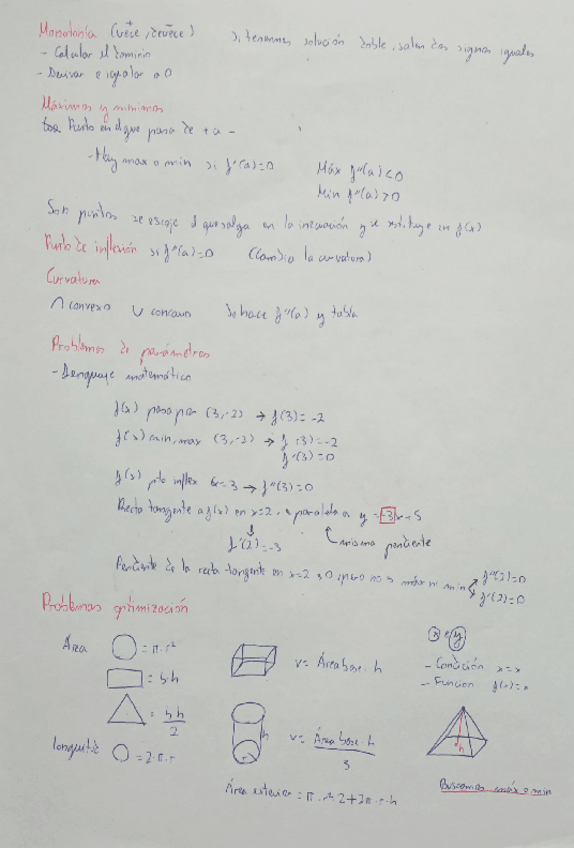 Monotonía (crece, decrece) si tenemos solución doble, salen dos signos iguales
- Calcular el dominio
- Derivar e igualar a 0
Máximos y mínimos
Punto en el que pasa de + a -
- Hay max o min si f'(a)=0 Máx f''(a)<0
Min f''(a)>0
Son puntos se escoje el que salga en la inecuación y se sustituye en f(x)
Punto de inflexión si f''(a)=0 (Cambia la curvatura)
Curvatura
∩ convexo ∪ concavo Se hace f''(a) y tabla
Problemas de parámetros
- Lenguaje matemático
f(x) pasa por (3,-2) → f(3)=-2
f(x) min, max (3,-2) → f(3)=-2
f'(3)=0
f(x) pto inflex x=3 → f''(3)=0
Recta tangente a f(x) en x=2, paralela a y=-3x+5
f'(2)=-3 misma pendiente
Pendiente de la recta tangente en x=2 es 0, pero no es máx ni min f''(2)=0
f'(2)=0
Problemas optimización
x e y
Área = π·r² V= Área base·h - Condición x=x
= b·h - Funcion f(x)=x
= b·h/2 V= Área base·h/3 h h
longuitud = 2·π·r
Área exterior = π·r²·2+2π·r·h Buscamos máx o min